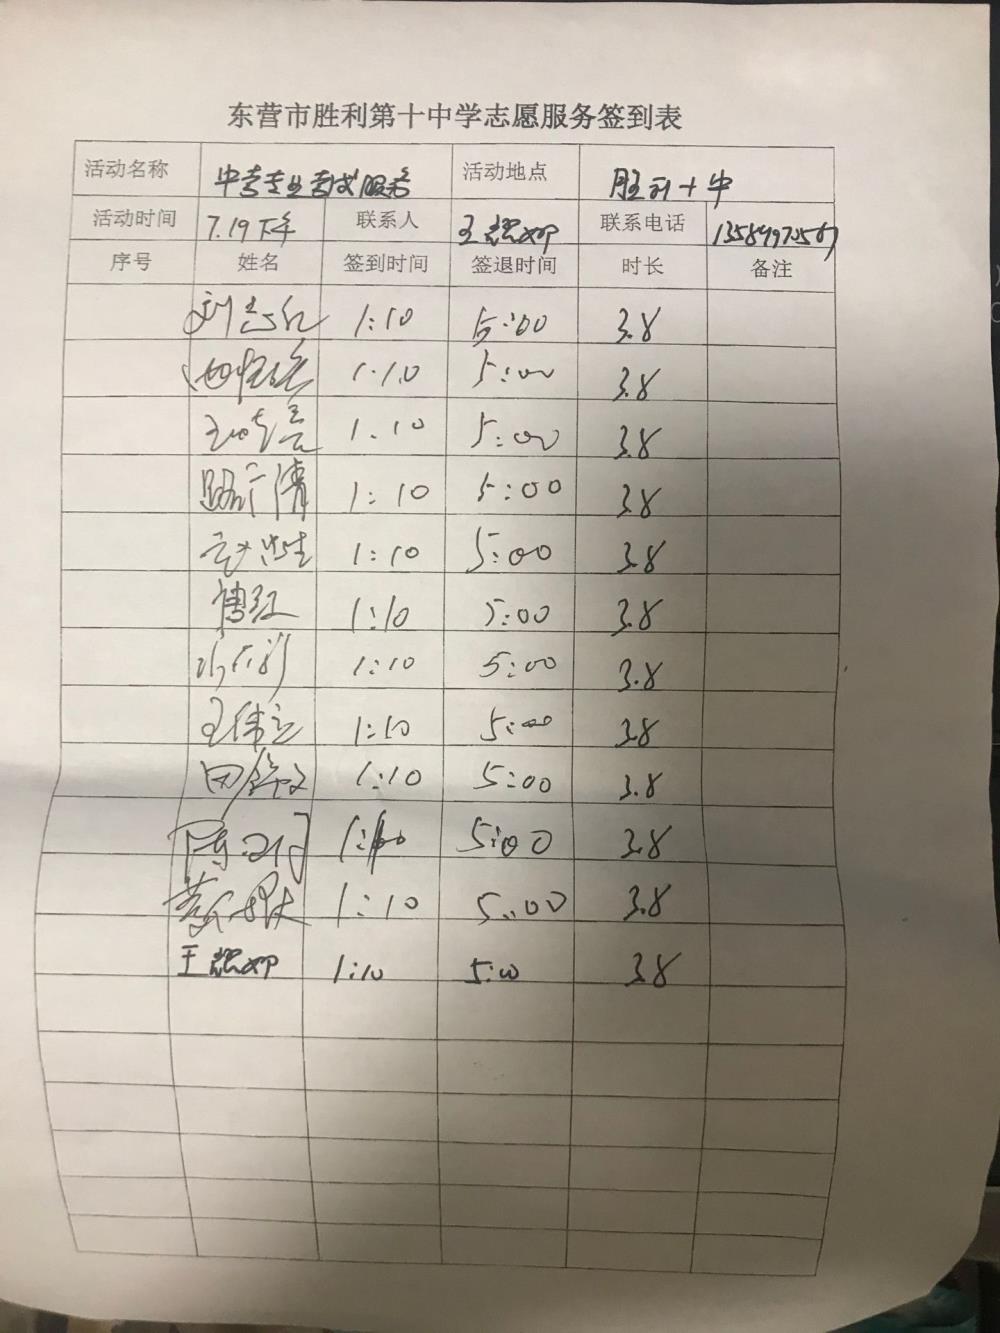 东营市胜利第十中学志愿服务签到表
活动名称 中考专业考试服务 活动地点 胜利十中
活动时间 7.19下午 联系人 王 联系电话
序号 姓名 签到时间 签退时间 时长 备注
刘志红 1:10 5:00 3.8
1:10 5:00 3.8
1:10 5:00 3.8
路广清 1:10 5:00 3.8
1:10 5:00 3.8
傅红 1:10 5:00 3.8
1:10 5:00 3.8
王伟立 1:10 5:00 3.8
田 1:10 5:00 3.8
陈 5:00 3.8
黄 1:10 5:00 3.8
王 1:10 5:00 3.8